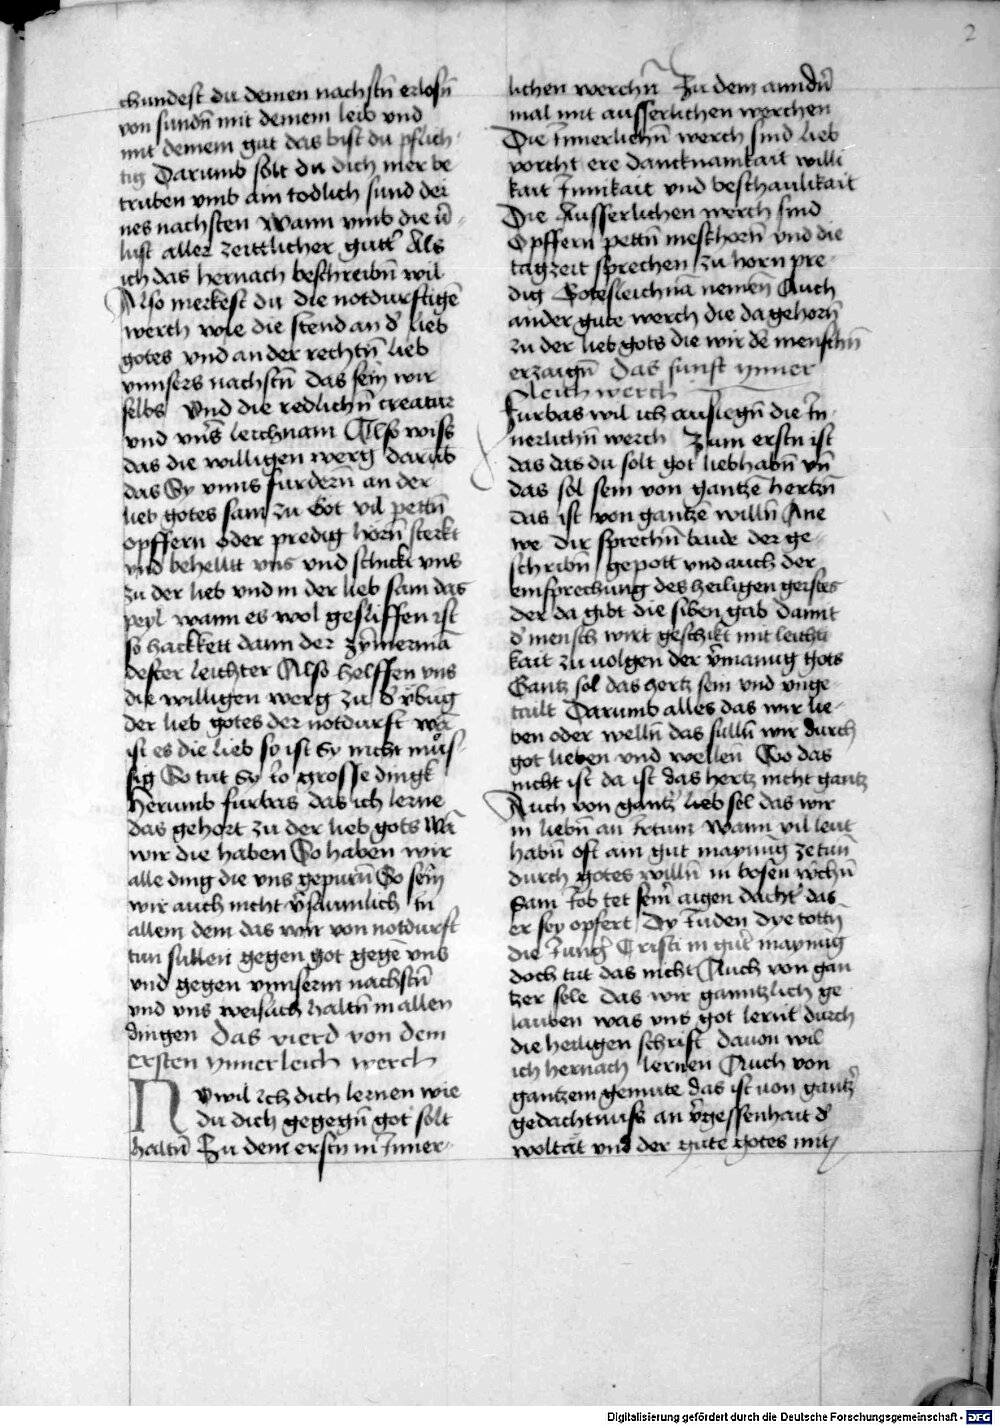 2
chundest du deinen nachstn̄ erlosn̄
von sundn̄ mit deinem leib vnd
mit deinem gut das bist du pflich-
tig Darumb solt du dich mer be
truben vmb ain todlich sund dei
nes nachsten Wann vmb die v̄
lust aller zeittlicher gutt̄ Als
ich das hernach beschreibn̄ wil
Also merkest du die notdurftigē
werch wie die stend an d̄ lieb
gotes vnd an der rechtn̄ lieb
vnnsers nachstn̄ das sein wir
selbs Vnd die redlichn̄ creatur
vnd vnn̄s leichnam Also wiss
das die willigen werg darūb
das Sy vnns furdern̄ an der
lieb gotes sam zu Got vil pettn̄
opffern oder predig horn̄ sterkt
vnd behelltt vns vnd schickt vns
zu der lieb vnd in der lieb sam das
peyl wann es wol gesliffen ist
so hackkett dann der zȳmermā
dester leichter Also helffen vns
die willigen werg zu d̄ v̄būg
der lieb gotes der notdurft wā
ist es die lieb so ist Sy nicht mus-
sig So tut Sy io grosse dingk
Herumb furbas das ich lerne
das gehort zu der lieb gots Wā
wir die haben So haben wir
alle ding die vns gepurn̄ So sein
wir auch nicht v̄saumlich in
allem dem das wir von notdurft
tun sullen gegen got gegē vns
vnd gegen vnnserm nachstn̄
vnd vns weislich haltn̄ in allen
dingen das vierd von dem
Ersten ynnerleich werch
NVwil Ich dich lernen wie
du dich gegegn̄ got solt
haltn̄ Zu dem erstn̄ in Inner-
lichen werchn̄ Zu dem anndn̄
mal mit ausserlichen werchen
Die Innerlichn̄ werch sind lieb
vorcht ere dancknamkait willi
kait Innikait vnd beschaulikait
Die Ausserlichen werch sind
Opffern pettn̄ messhorn̄ vnd die
tagzeit sprechen zu horn pre-
dig Gotesleichnā nemen̄ Auch
ander gute werch die da gehorn̄
zu der lieb gots die wir dē menschn̄
erzaign̄ Das funft ynner
leich werch
Furbas wil ich auslegn̄ die In-
nerlichn̄ werch Zum erstn ist
das das du solt got liebhabn̄ vn̄
das sol sein von gantzē hertzn̄
das ist von gantzē willn̄ Ane
we dir sprechn̄ baide der ge-
schribn̄ gepott vnd auch der
einsprechung des heiligen geistes
der da gibt die siben gab damit
d̄ mensch wirt geschikt mit leichti
kait zu uolgen der v̄manūg gots
Gantz sol das hertz sein vnd vnge-
tailt Darumb alles das wir lie-
ben oder welln̄ das sulln̄ wir durch
got lieben vnd wellen̄ Wo das
nicht ist da ist das hertz nicht gantz
Auch von gantz̄ lieb sol das wir
in liebn̄ an Irtum Wann vil leut
habn̄ oft ain gut maynūg zetun̄
durch gotes willn̄ in bosen w̄chn̄
Sam Iob tet sein̄ aigen dacht̄ das
er sey opfert Dy Iuden dye tottn̄
die Iunḡ Cristi in gut̄ maynūg
doch tut das nicht Auch von gan
tzer sele das wir ganntzlich ge
lauben was vns got lernt durch
die heiligen schrift dauon wil
ich hernach lernen Auch von
gantzem gemute das ist von gantz̄
gedachtnuss an v̄gessenhait d̄
woltat vnd der gute gotes mit
Digitalisierung gefördert durch die Deutsche Forschungsgemeinschaft - DFG